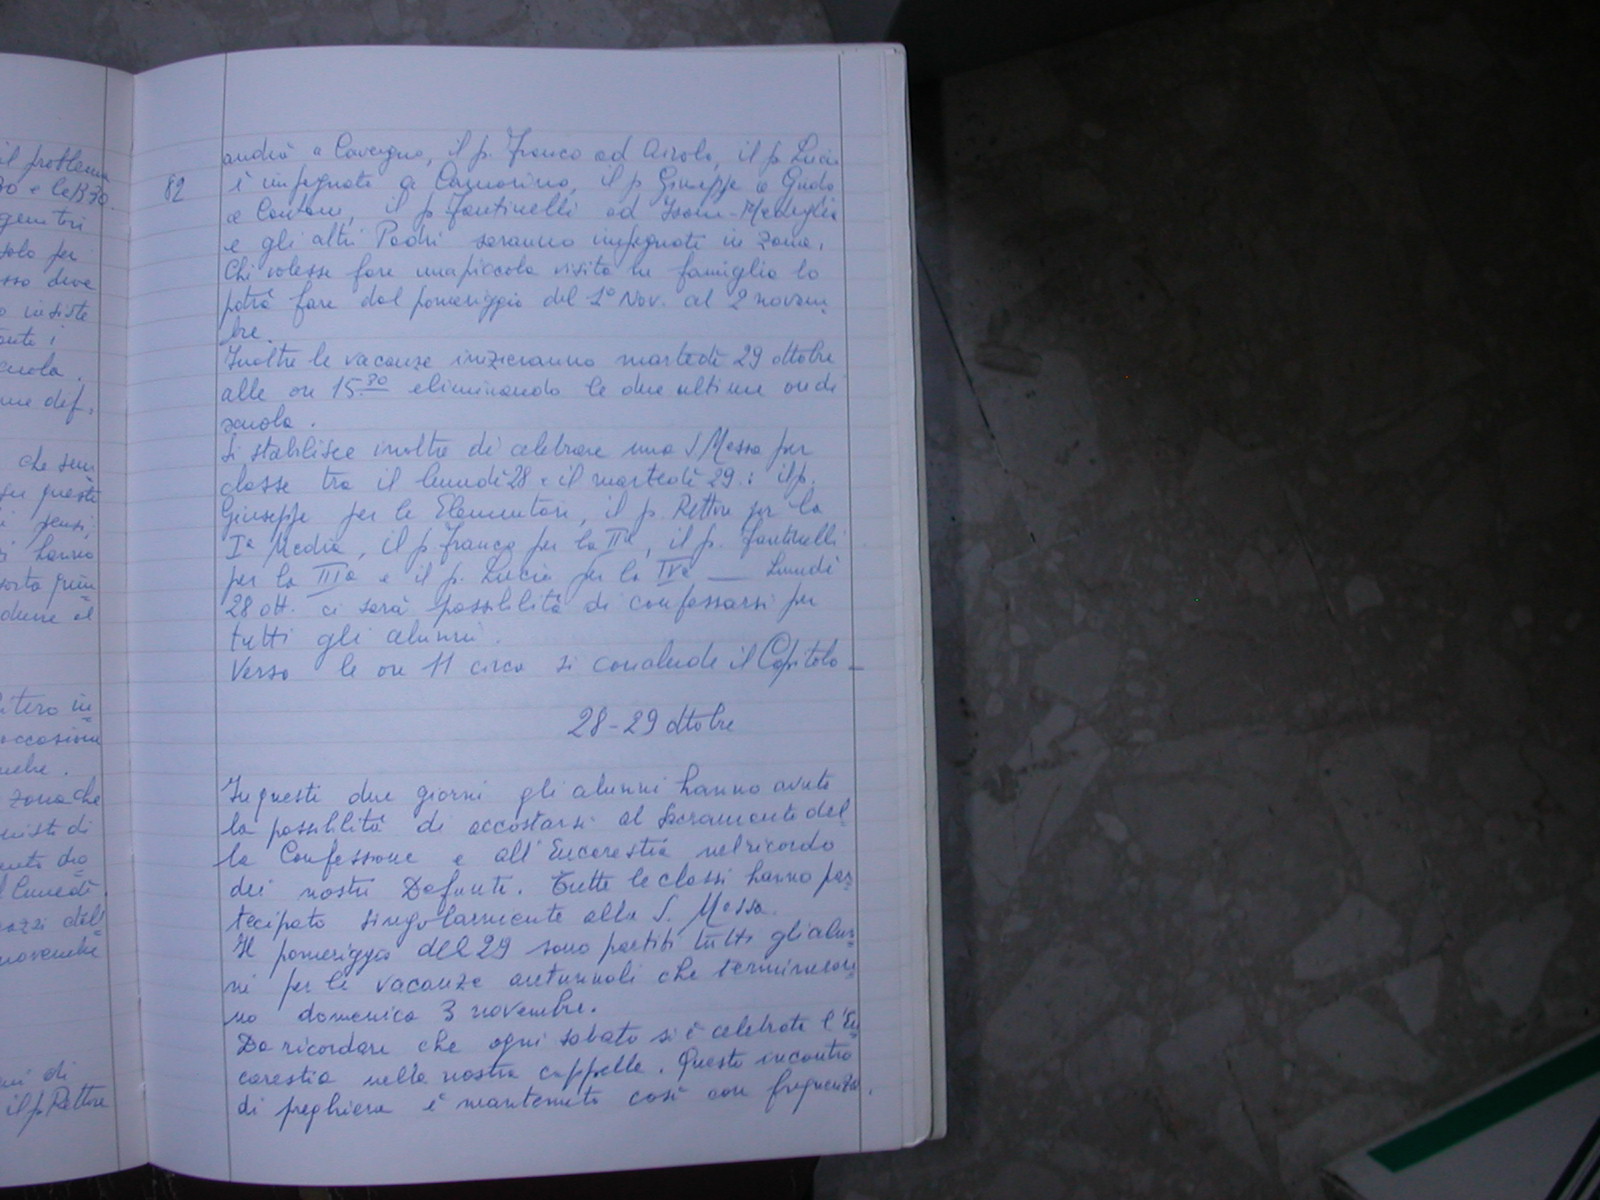 il problema
30 e le 8.30.
genitori
solo per
sso deve
o insiste
i
scuola.
def.
che sem
su questi
i pensi,
i hanno
al
intero in=
occasione
zona che
di
lunedì.
novembre
di
il p. Rettore
82
andrà a Cavergno, il p. Franco ad Airolo, il p. Lucio
è impegnato a Camorino, il p. Giuseppe a Gudo
e Contone, il p. Fantinelli ad Isone-Medeglia
e gli altri Padri saranno impegnati in zona.
Chi volesse fare una piccola visita in famiglia lo
potrà fare dal pomeriggio del 1° Nov. al 2 novem=
bre.
Inoltre le vacanze inizieranno martedì 29 ottobre
alle ore 15.30 eliminando le due ultime ore di
scuola.
Si stabilisce inoltre di celebrare una S Messa per
classe tra il lunedì 28 e il martedì 29: il p.
Giuseppe per le Elementari, il p. Rettore per la
Iª Media, il p. Franco per la IIª, il p. Fantinelli
per la IIIª e il p. Lucio per la IVª — Lunedì
28 ott. ci sarà possibilità di confessarsi per
tutti gli alunni.
Verso le ore 11 circa si conclude il Capitolo —
28-29 ottobre
In questi due giorni gli alunni hanno avuto
la possibilità di accostarsi al Sacramento del=
la Confessione e all'Eucarestia nel ricordo
dei nostri Defunti. Tutte le classi hanno par=
tecipato singolarmente alla S. Messa.
Il pomeriggio del 29 sono partiti tutti gli alun=
ni per le vacanze autunnali che termineran=
no domenica 3 novembre.
Da ricordare che ogni sabato si è celebrata l'Eu=
carestia nella nostra cappella. Questo incontro
di preghiera è mantenuto così con frequenza.